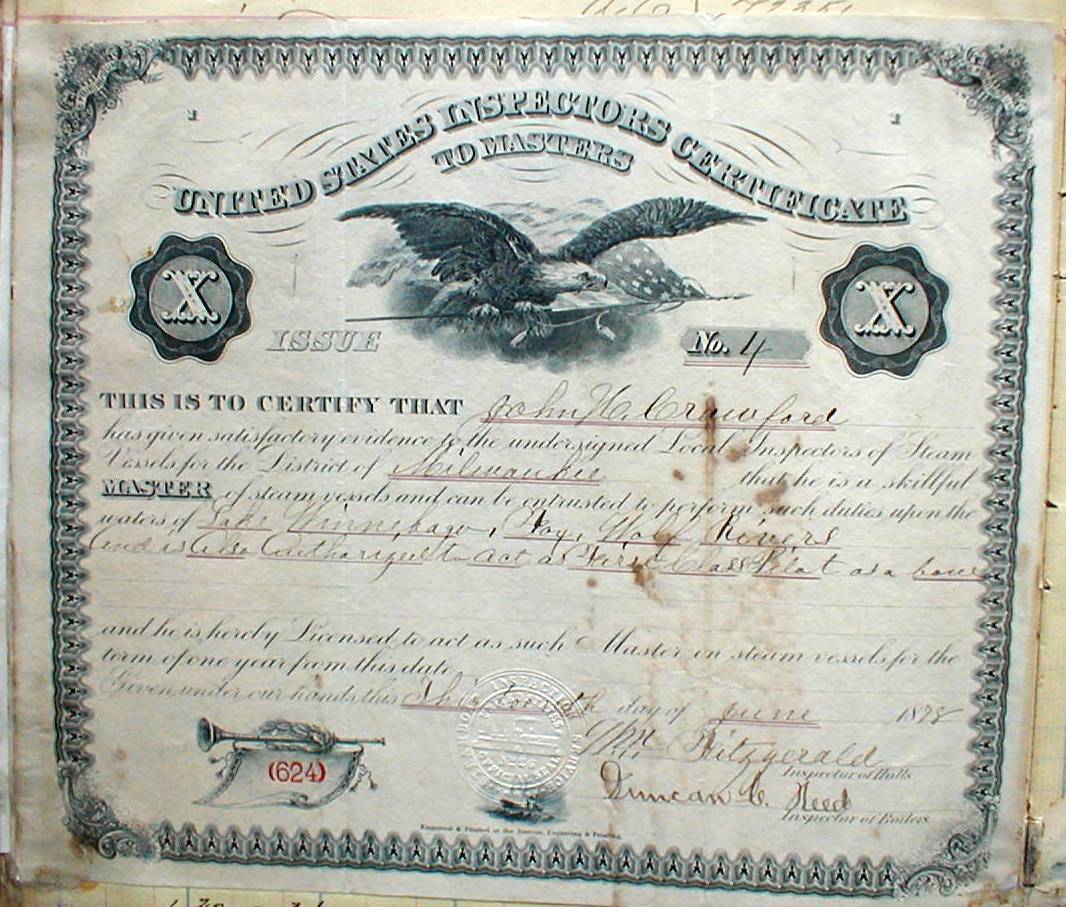 UNITED STATES INSPECTORS CERTIFICATE
TO MASTERS
X
X
ISSUE
No. 4
THIS IS TO CERTIFY THAT John H. Crawford
has given satisfactory evidence to the undersigned Local Inspectors of Steam
Vessels for the District of Milwaukie that he is a skillful
MASTER of steam vessels and can be entrusted to perform such duties upon the
waters of Lake Winnebago, Fox, Wolf Rivers
and is Also Authorized to act as First Class Pilot on
and he is hereby Licensed to act as such Master on steam vessels for the
term of one year from this date.
Given under our hands this day of June 1878
Wm Fitzgerald
Inspector of Hulls
(624)
Duncan C. Reed
Inspector of Boilers
Engraved & Printed at the Bureau, Engraving & Printing.